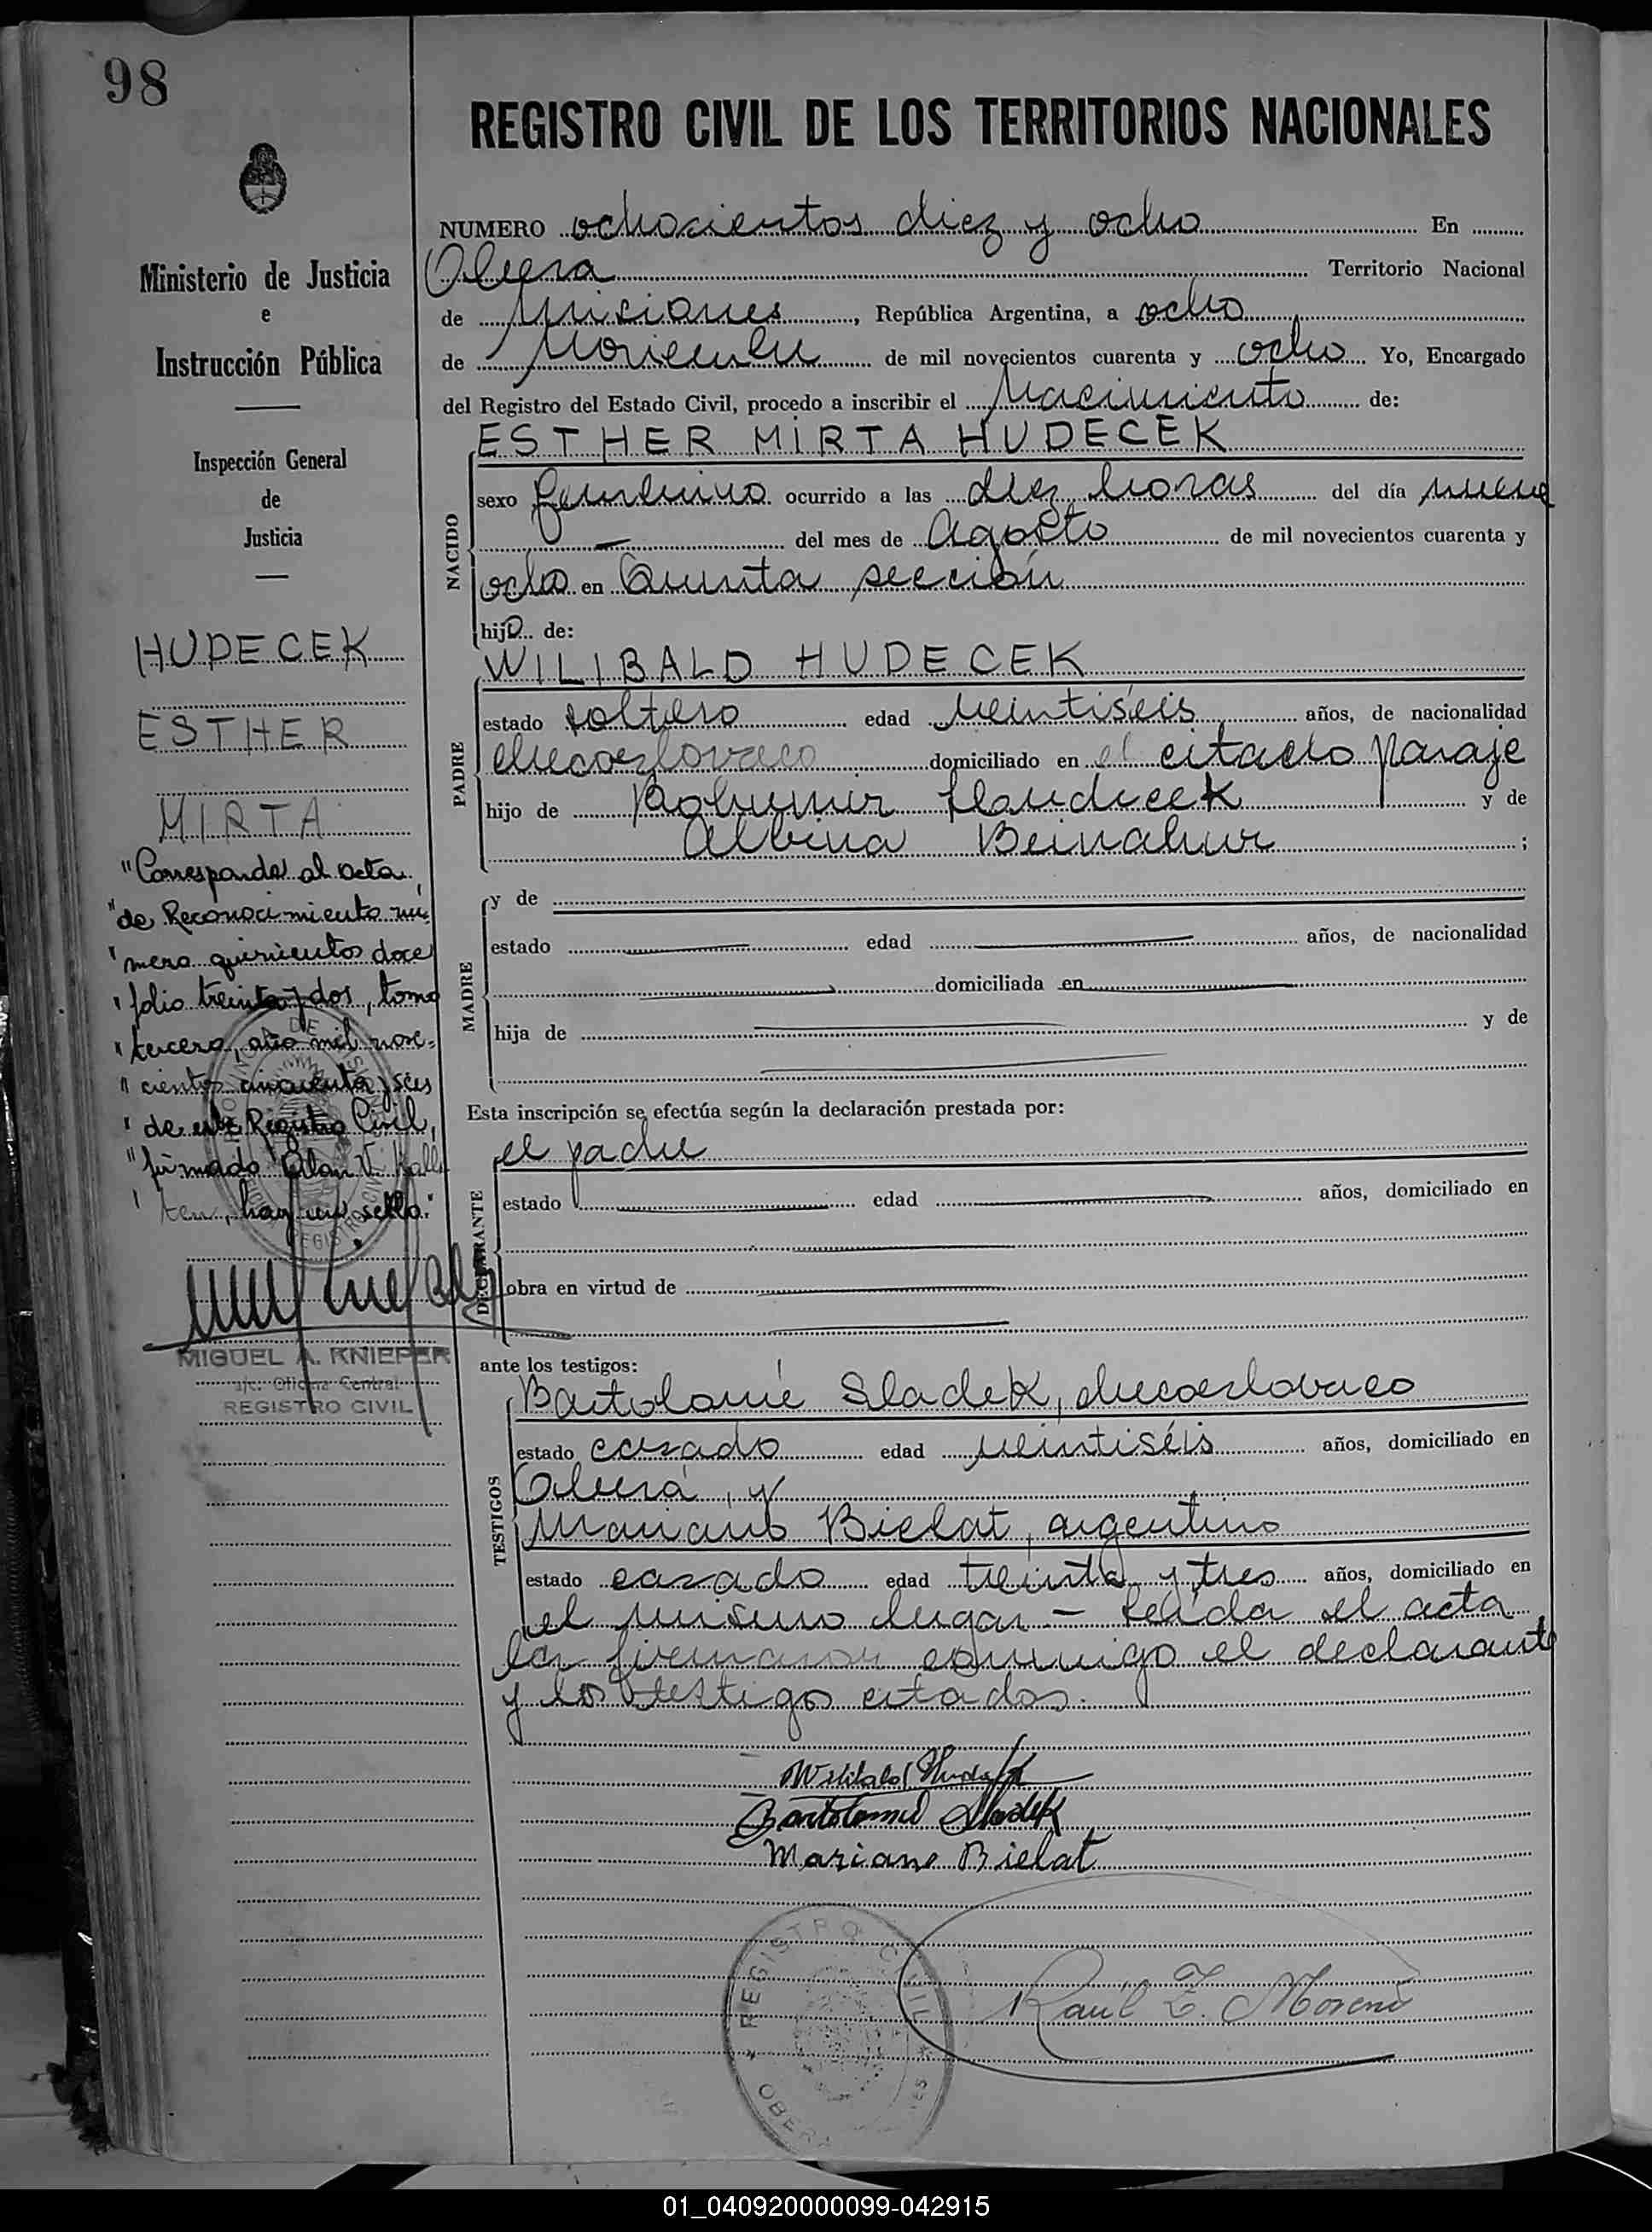 98
REGISTRO CIVIL DE LOS TERRITORIOS NACIONALES
Ministerio de Justicia
e
Instrucción Pública
Inspección General
de
Justicia
HUDECEK
ESTHER
MIRTA
"Corresponde al acta
"de Reconocimiento nu-
"mero quinientos doce
"folio treinta y dos, tomo
"tercero, año mil nove-
"cientos cincuenta y seis
"de este Registro Civil,
"firmado Alan V.
hay un sello."
MIGUEL A. KNIEPER
a/c. Oficina Central
REGISTRO CIVIL
NUMERO ochocientos diez y ocho En
Oberá Territorio Nacional
de Misiones, República Argentina, a ocho
de Noviembre de mil novecientos cuarenta y ocho Yo, Encargado
del Registro del Estado Civil, procedo a inscribir el Nacimiento de:
NACIDO
ESTHER MIRTA HUDECEK
sexo femenino ocurrido a las diez horas del día nueve
— del mes de Agosto de mil novecientos cuarenta y
ocho en Quinta sección
hijo de:
PADRE
WILIBALD HUDECEK
estado soltero edad veintiséis años, de nacionalidad
checoeslovaco domiciliado en el citado paraje
hijo de Bohumir y de
Albina ;
MADRE
y de
estado edad años, de nacionalidad
domiciliada en
hija de y de
Esta inscripción se efectúa según la declaración prestada por:
DECLARANTE
el padre
estado edad años, domiciliado en
obra en virtud de
ante los testigos:
TESTIGOS
Bartolomé Sladek, checoeslovaco
estado casado edad veintiséis años, domiciliado en
Oberá, y
Mariano Bielat, argentino
estado casado edad treinta y tres años, domiciliado en
el mismo lugar — Leída el acta
la firmaron conmigo el declarante
y los testigos citados.
Wilibald
Bartolomé Sladek
Mariano Bielat
REGISTRO CIVIL
OBERA
Raúl Z. Moreno
01_040920000099-042915